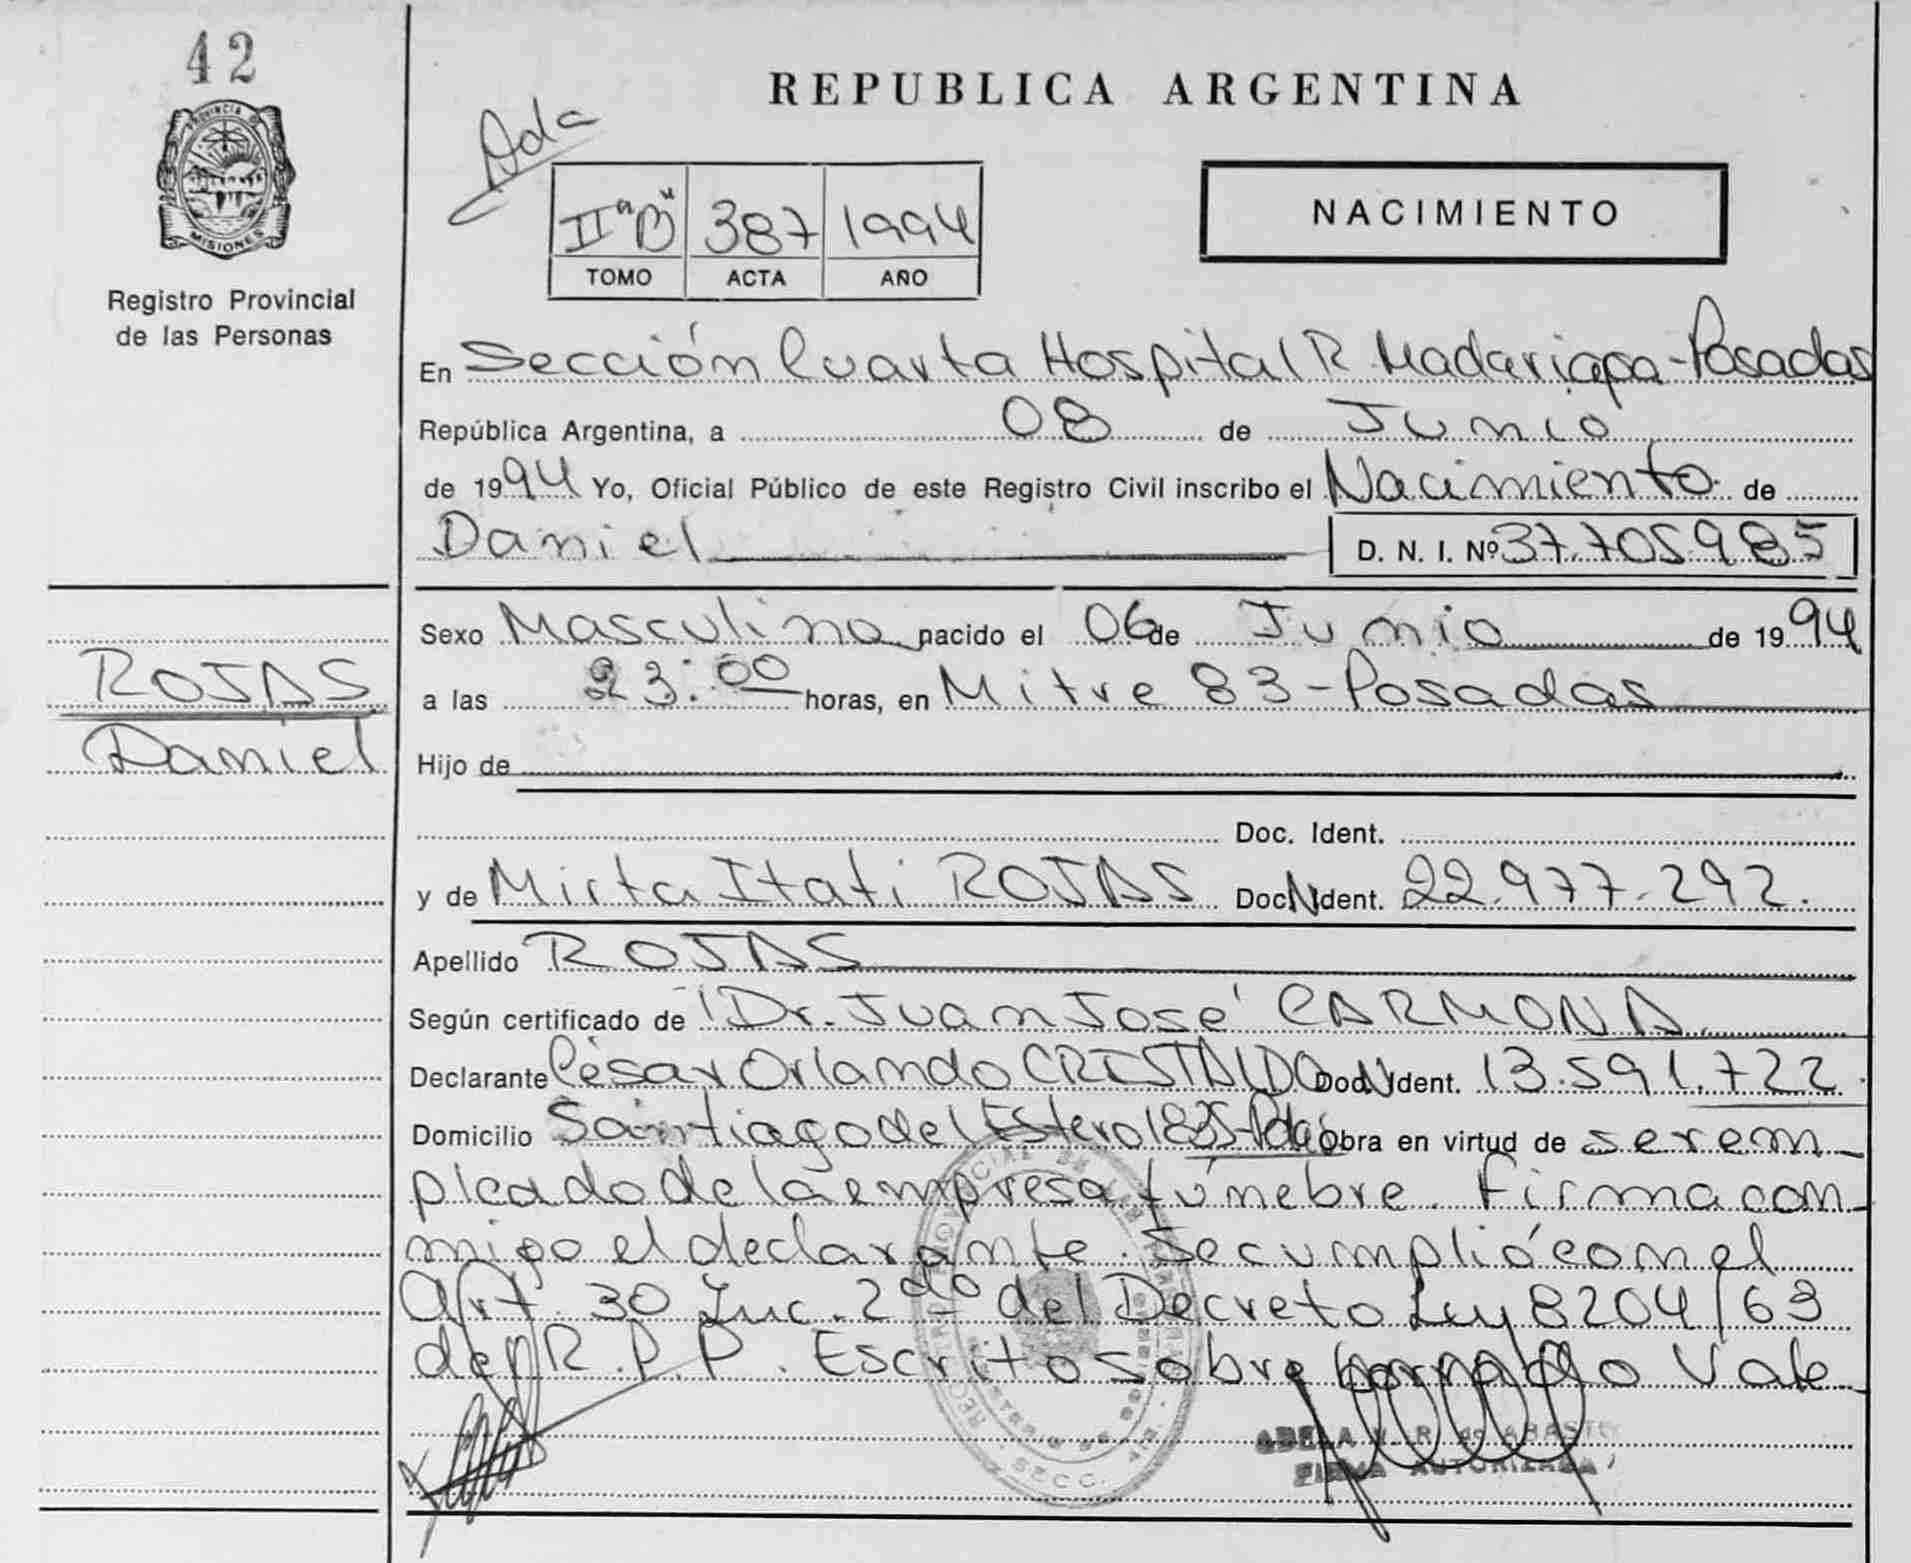 42
PROVINCIA DE
MISIONES
Registro Provincial
de las Personas
ROJAS
Daniel
REPUBLICA ARGENTINA
Ada
IIª"B" 387 1994
TOMO ACTA AÑO
NACIMIENTO
En Sección Cuarta Hospital R. Madariaga-Posadas
República Argentina, a 08 de Junio
de 1994 Yo, Oficial Público de este Registro Civil inscribo el Nacimiento de
Daniel D. N. I. Nº 37.705.985
Sexo Masculino nacido el 06 de Junio de 1994
a las 23:00 horas, en Mitre 83-Posadas
Hijo de
Doc. Ident.
y de Mirta Itati ROJAS Doc. N Ident. 22.977.292.
Apellido ROJAS
Según certificado de Dr. Juan José CARMONA
Declarante César Orlando CRISTALDO Doc. N Ident. 13.591.722
Domicilio Santiago del Estero 1835-Pdas Obra en virtud de ser em
pleado de la empresa fúnebre. Firma con
migo el declarante. Se cumplió con el
Art. 30 Inc. 2do del Decreto Ley 8204/63
del R.P.P. Escrito sobre borrado Vale
SECC. 4ta.
ADELA R. de
FIRMA AUTORIZADA